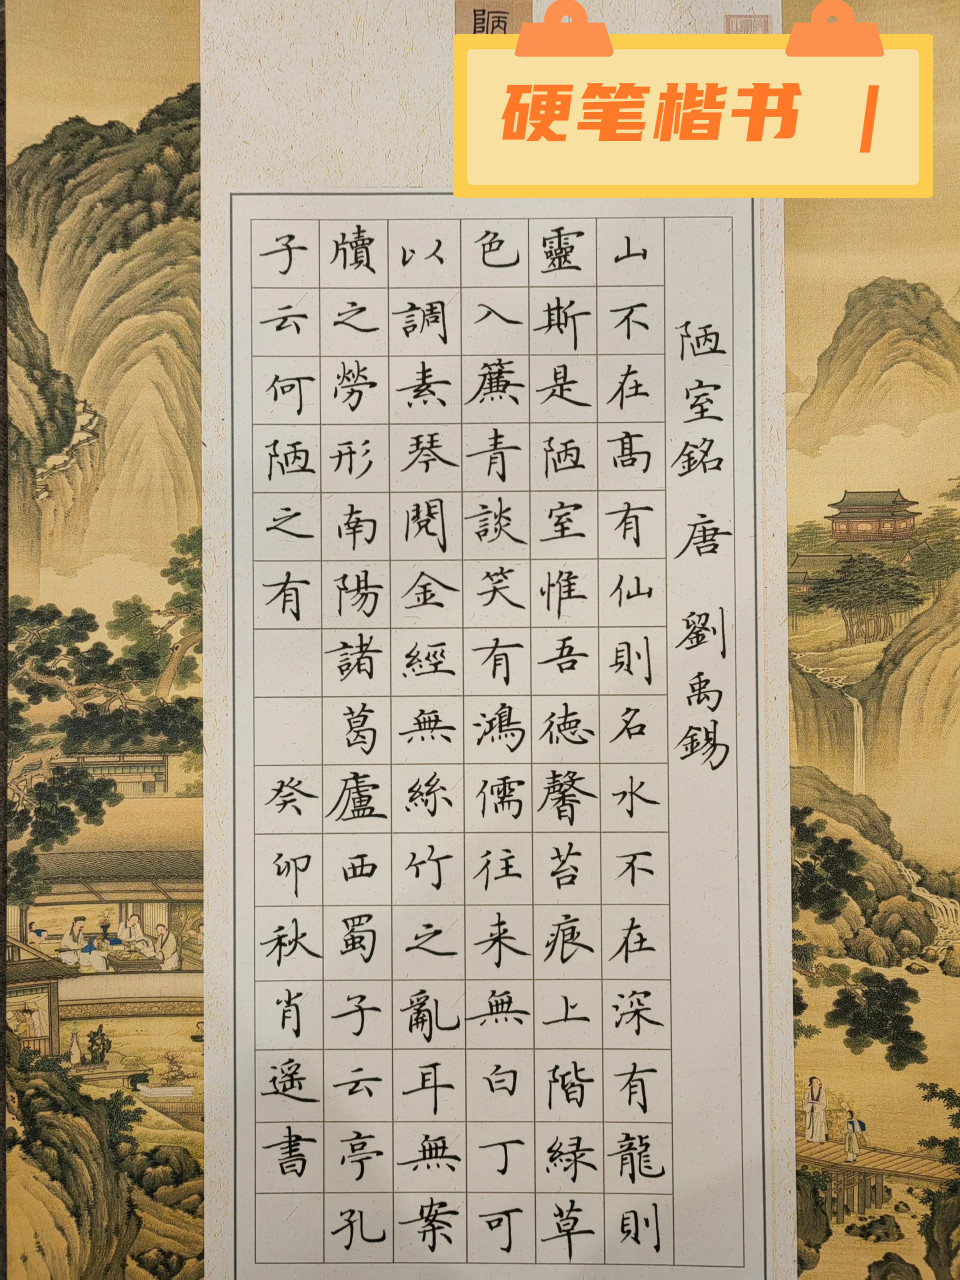 硬笔楷书 |
陋
陋室銘 唐 劉禹錫
山不在髙有仙則名水不在深有龍則
靈斯是陋室惟吾徳馨苔痕上階緑草
色入簾青談笑有鴻儒往来無白丁可
以調素琴閱金經無絲竹之亂耳無案
牘之勞形南陽諸葛廬西蜀子云亭孔
子云何陋之有 癸卯秋肖遥書